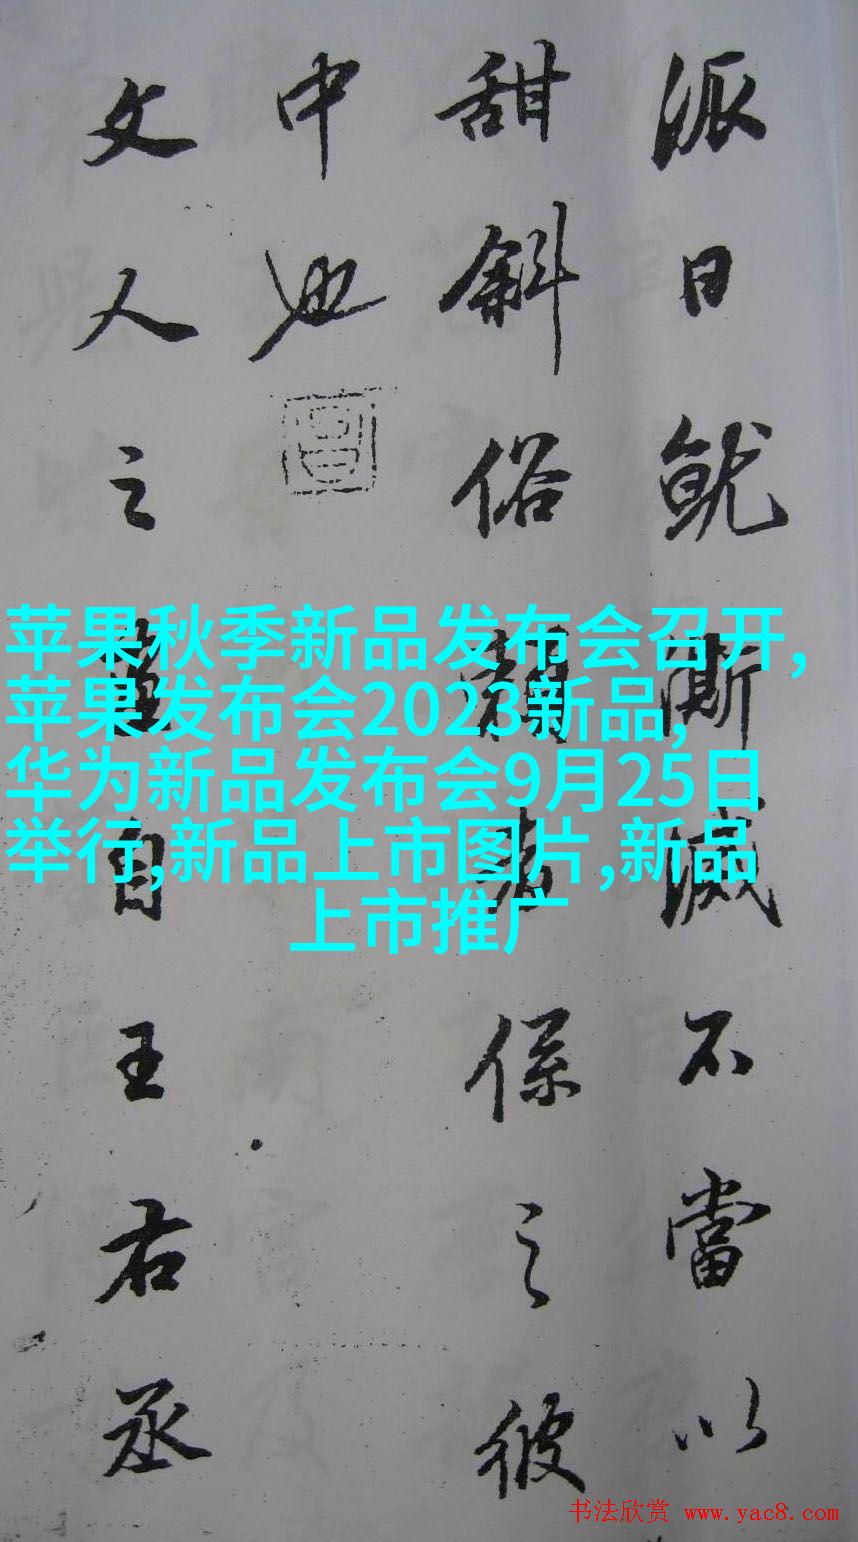 派日就澌滅不當以
甜斜俗賴者係之彼
中也
文人之畫自王右丞
苹果秋季新品发布会召开,
苹果发布会2023新品,
华为新品发布会9月25日
举行,新品上市图片,新品
上市推广
书法欣赏 www.yac8.com